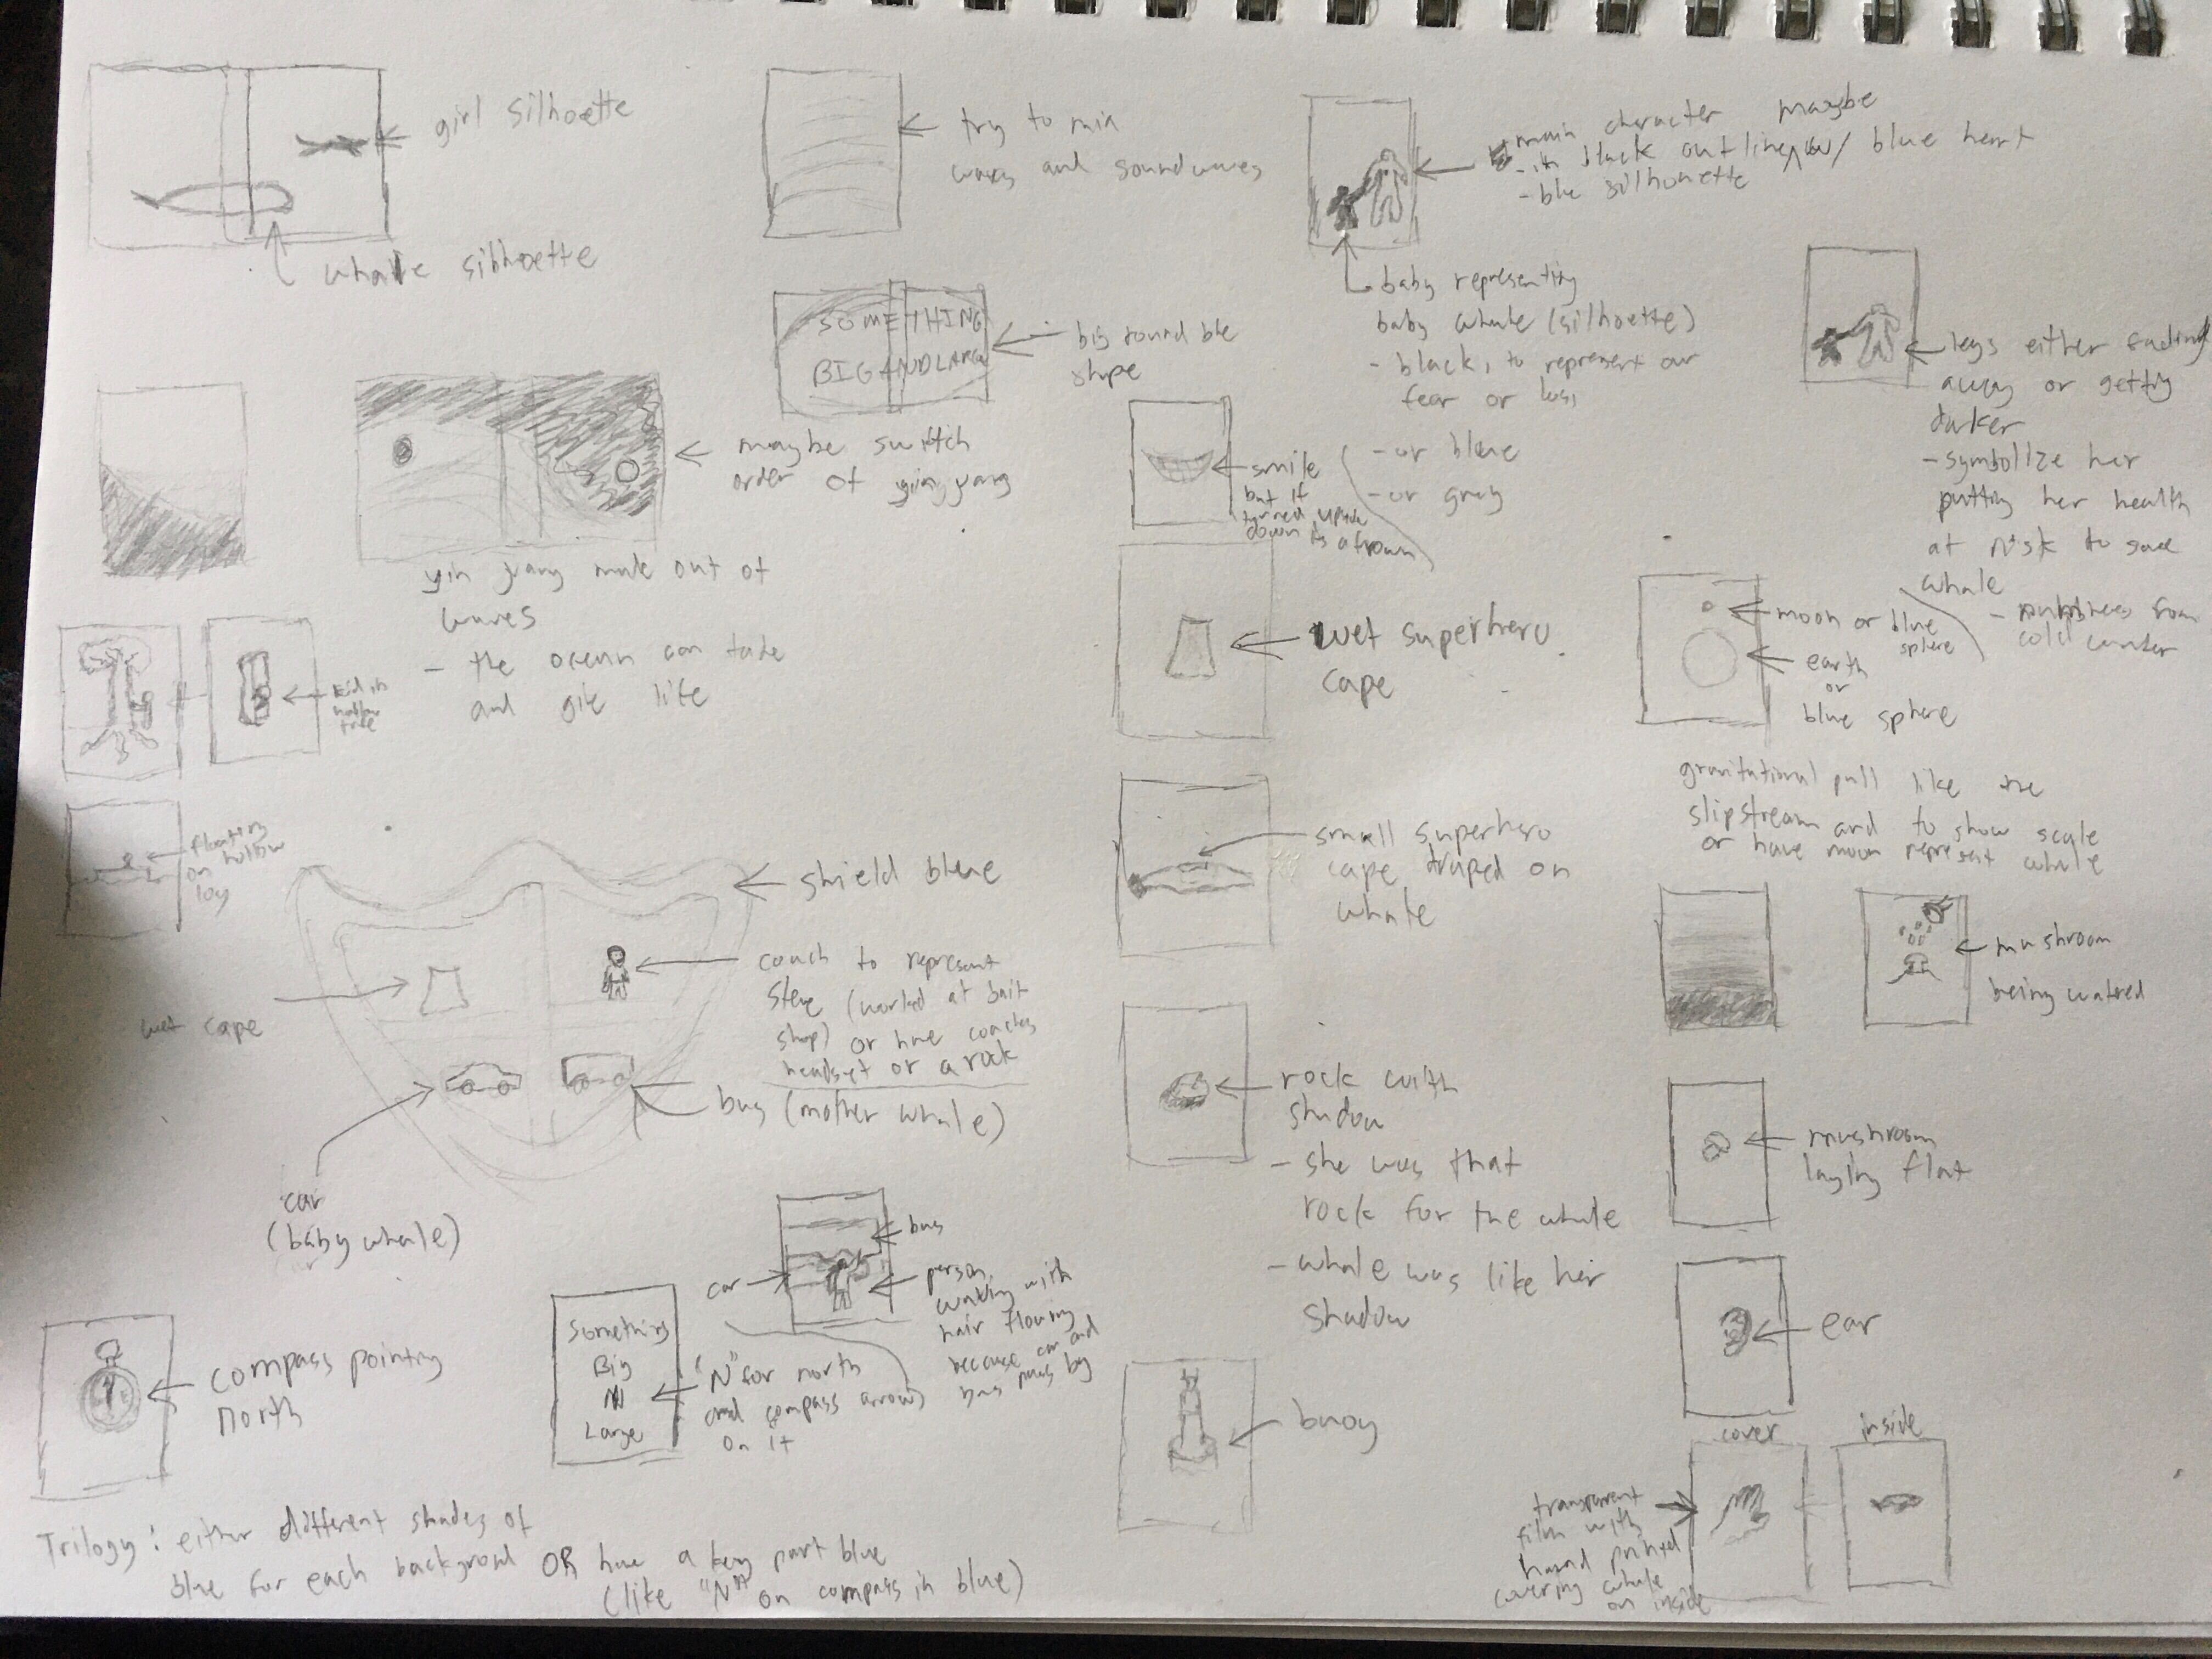 girl silhoette
whale silhoette
try to mix
waves and soundwaves
main character maybe
- in black outline w/ blue heart
- blue silhouette
baby representing
baby whale (silhoette)
- black, to represent our
fear or loss
- or blue
- or gray
legs either fading
away or getting
darker
- symbolize her
putting her health
at risk to save
whale
- numbness from
cold water
SOMETHING
BIG AND LARGE
big round blue
shape
maybe switch
order of yin yang
yin yang made out of
waves
- the ocean can take
and give life
smile
but if
turned upside
down its a frown
kid in
hollow
tree
floating
on hollow
log
wet superhero
cape
moon or blue
sphere
earth
or
blue sphere
gravitational pull like the
slipstream and to show scale
or have moon represent whale
small superhero
cape draped on
whale
shield blue
wet cape
coach to represent
Steve (worked at bait
shop) or have coaches
headset or a rock
bus (mother whale)
car
(baby whale)
mushroom
being watred
rock with
shadow
- she was that
rock for the whale
- whale was like her
shadow
mushroom
laying flat
bus
car
person
walking with
hair flowing
because car and
bus pass by
compass pointing
north
Something
Big
N
Large
"N" for north
and compass arrow
on it
buoy
ear
cover
inside
transparent
film with
hand printed
covering whale
on inside
Trilogy: either different shades of
blue for each background OR have a key part blue
(like "N" on compass in blue)